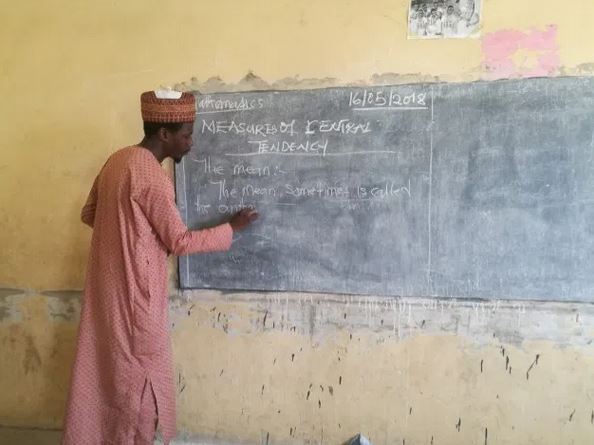 Mathematics 16/05/2018
MEASURES OF CENTRAL
TENDENCY
The mean:-
The mean sometimes is called
the